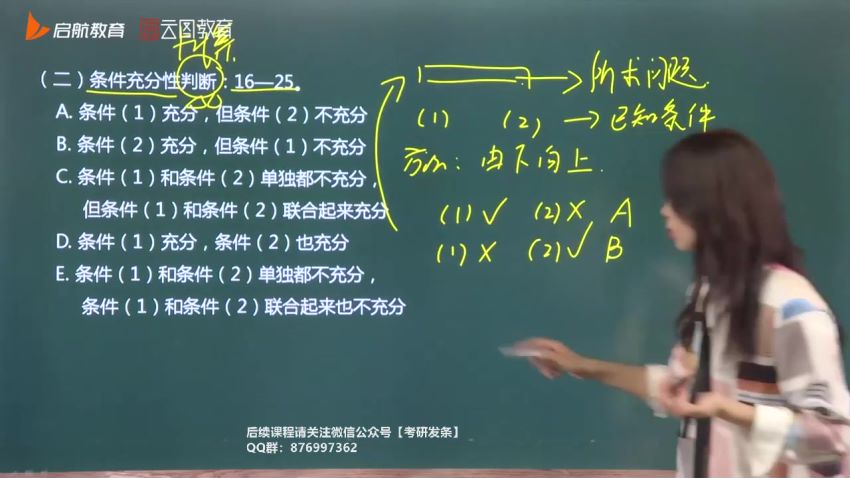 启航教育 云图教育
(二)条件充分性判断:16—25。
A. 条件(1)充分,但条件(2)不充分
B. 条件(2)充分,但条件(1)不充分
C. 条件(1)和条件(2)单独都不充分,
但条件(1)和条件(2)联合起来充分
D. 条件(1)充分,条件(2)也充分
E. 条件(1)和条件(2)单独都不充分,
条件(1)和条件(2)联合起来也不充分
→ 所求问题
(1) (2) → 已知条件
方向:由下向上.
(1)√ (2)× A
(1)× (2)√ B
后续课程请关注微信公众号【考研发条】
QQ群:876997362